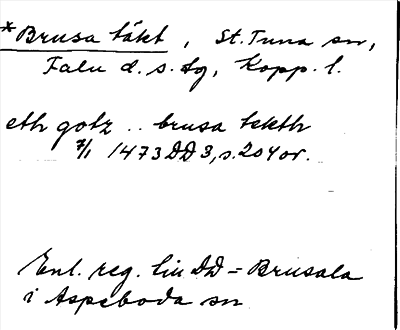 *Brusa täkt, St. Tuna sn,
Falu d. s. dg, Kopp. l.
eth gotz .. brusa tekth
7/1 1473 DD 3, s. 204 or.
Enl. reg. till DD = Brusala
i Aspeboda sn